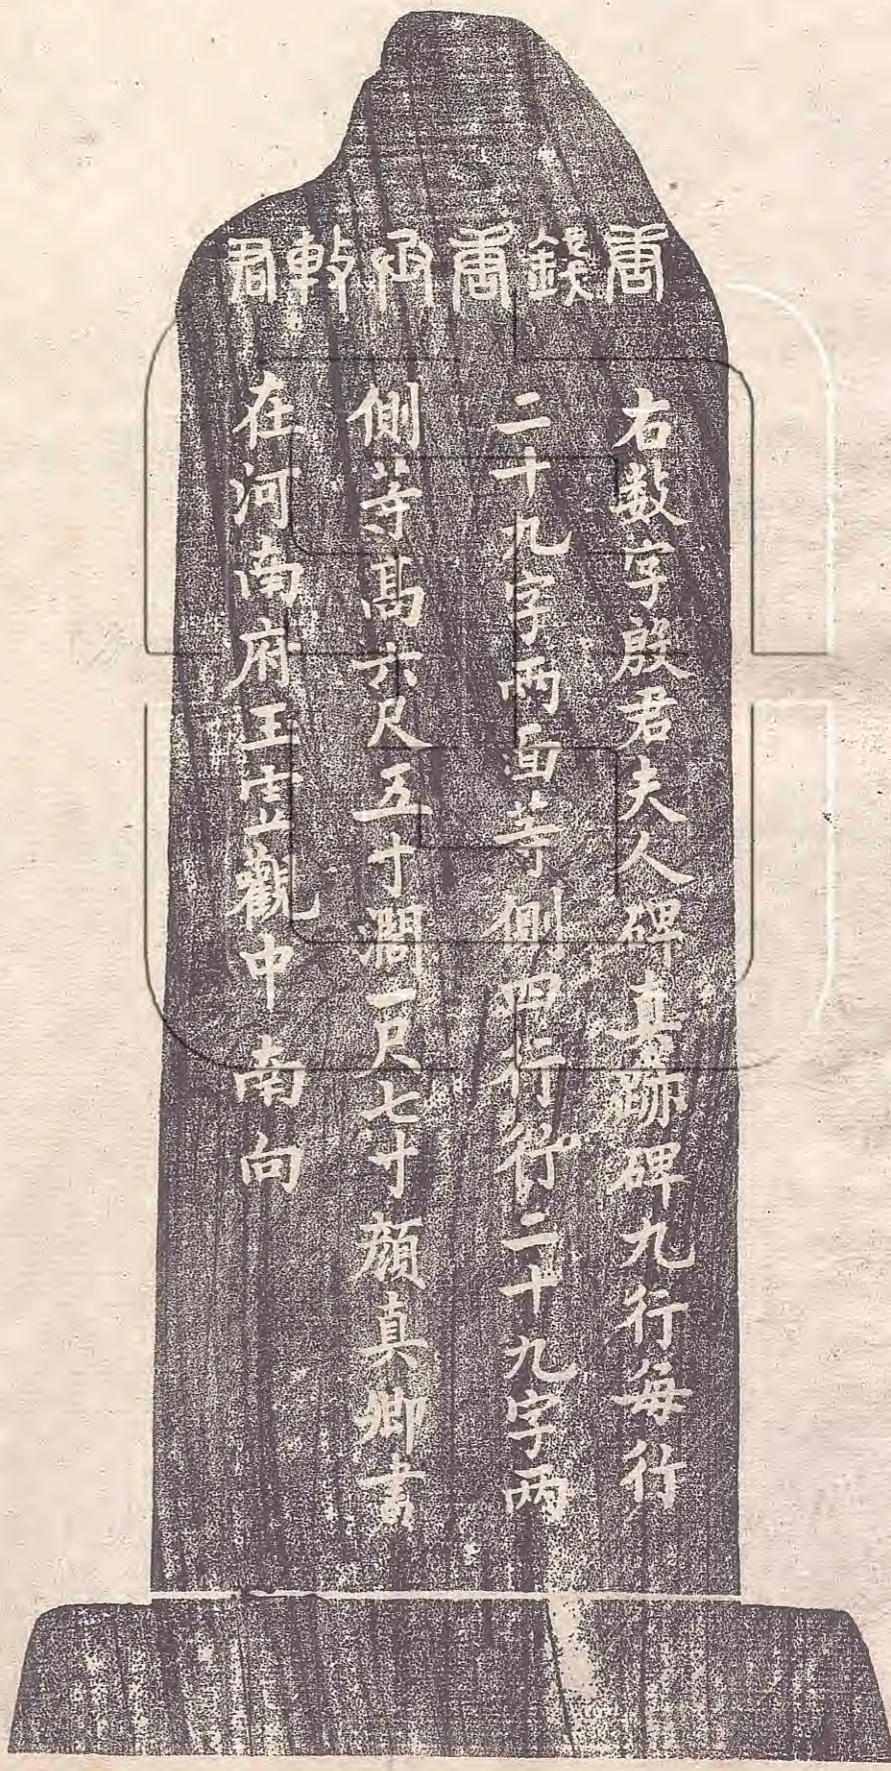 唐錢唐丞殷君
右数字殷君夫人碑真跡碑九行每行
二十九字兩面等側四行行二十九字两
側等髙六尺五寸濶一尺七寸顏真卿書
在河南府王觀中南向